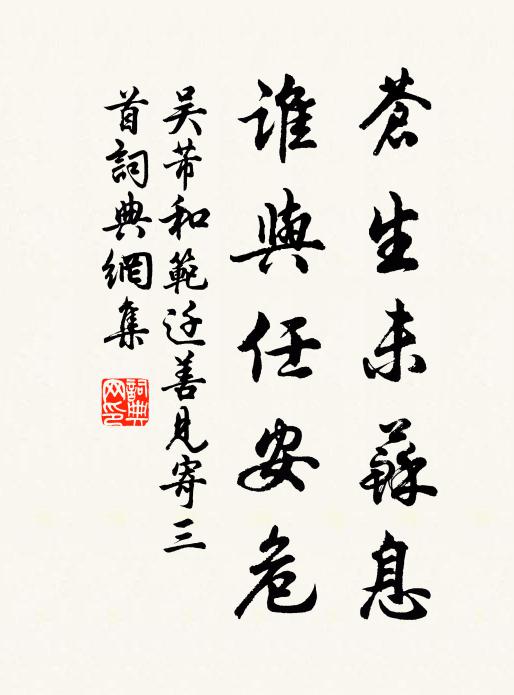 蒼生未蘇息
誰與任安危
吴芾和範迂善見寄三
首詞典網集
詞典网印